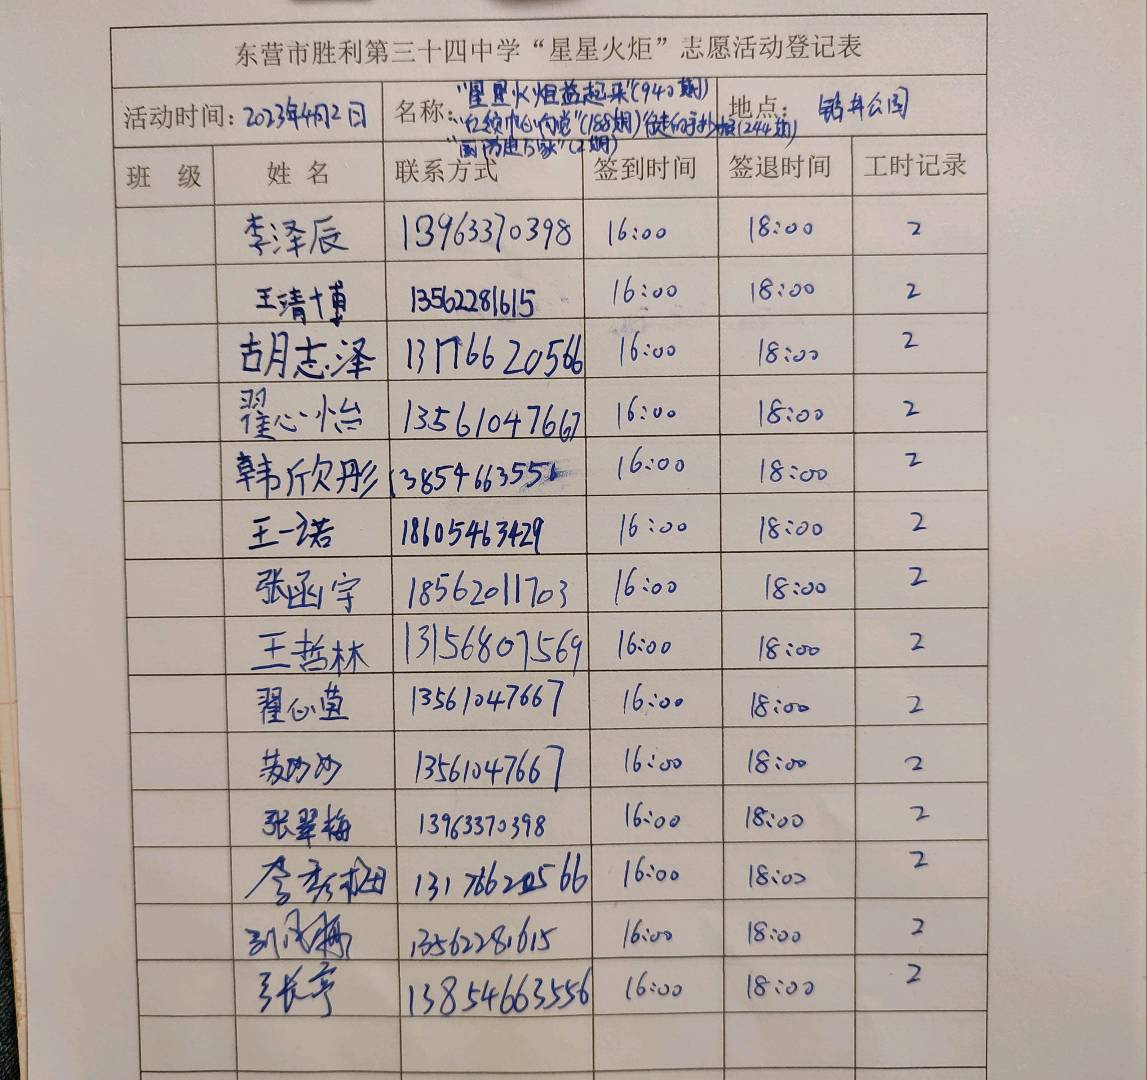 东营市胜利第三十四中学“星星火炬”志愿活动登记表
活动时间：2023年4月2日 名称：“星星火炬益起来”(940期) 地点：
“红领巾心向党”(188期)
班 级 姓 名 联系方式 签到时间 签退时间 工时记录
李泽辰 13963370398 16:00 18:00 2
王清博 13562281615 16:00 18:00 2
胡志泽 13176620566 16:00 18:00 2
翟心怡 13561047667 16:00 18:00 2
韩欣彤 13854663556 16:00 18:00 2
王一诺 18605463429 16:00 18:00 2
张函宇 18562011703 16:00 18:00 2
王哲林 13156807569 16:00 18:00 2
翟心茁 13561047667 16:00 18:00 2
13561047667 16:00 18:00 2
张翠梅 13963370398 16:00 18:00 2
13176620566 16:00 18:00 2
13562281615 16:00 18:00 2
张亭 13854663556 16:00 18:00 2